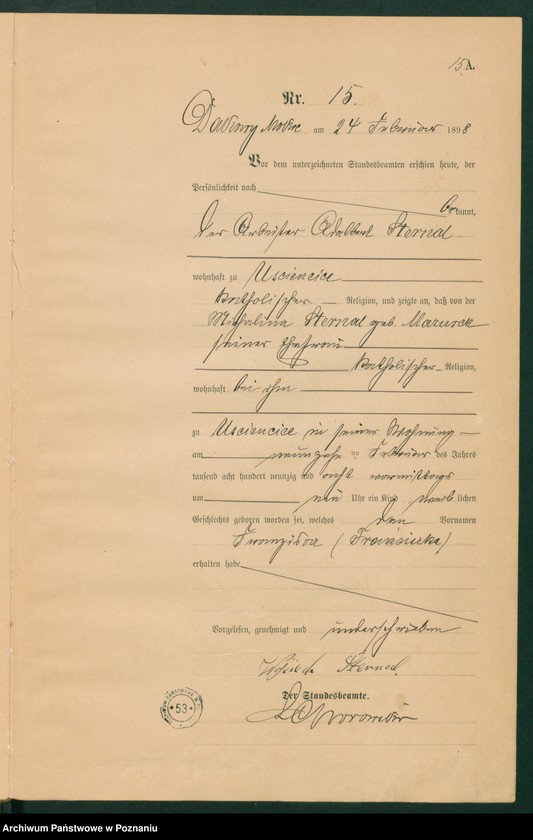 15 A.
Nr. 15.
am 24 Februar 1898
Vor dem unterzeichneten Standesbeamten erschien heute, der
Persönlichkeit nach
be kannt,
der Arbeiter Adalbert Sternal
wohnhaft zu Usciencice
katholischer Religion, und zeigte an, daß von der
Michalina Sternal geb. Mazurek
seiner Ehefrau
katholischer Religion,
wohnhaft bei ihm
zu Usciencice in seiner Wohnung
am neunzehn ten Februar des Jahres
tausend acht hundert neunzig und acht vormittags
um Uhr ein Kind weib lichen
Geschlechts geboren worden sei, welches den Vornamen
Franziska (Franciszka)
erhalten habe.
Vorgelesen, genehmigt und unterschrieben
Sternal.
Der Standesbeamte.
53
Archiwum Państwowe w Poznaniu